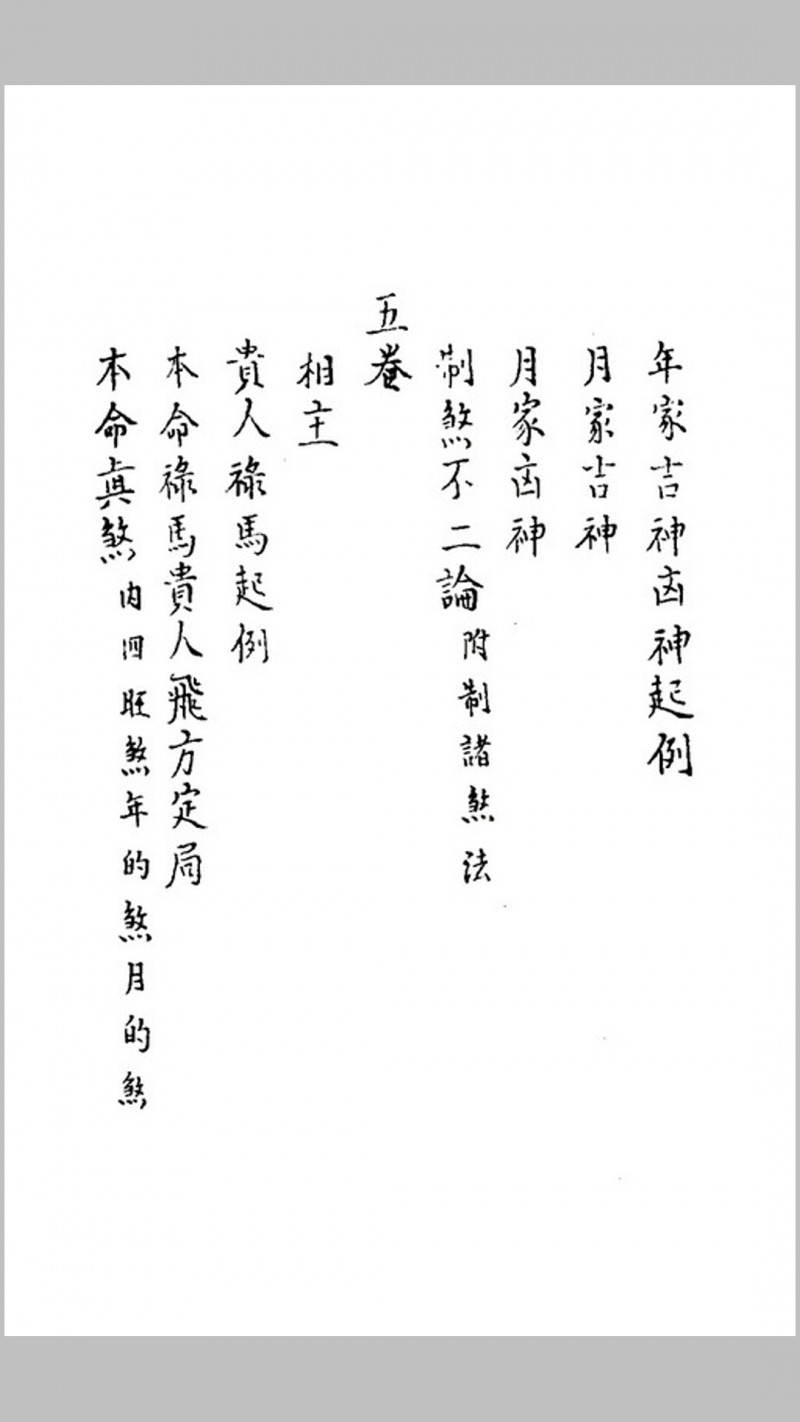 年家吉神凶神起例
月家吉神
月家凶神
制煞不二論 附制諸煞法
五卷
相主
貴人祿馬起例
本命祿馬貴人飛方定局
本命真煞 内四旺煞年的煞月的煞